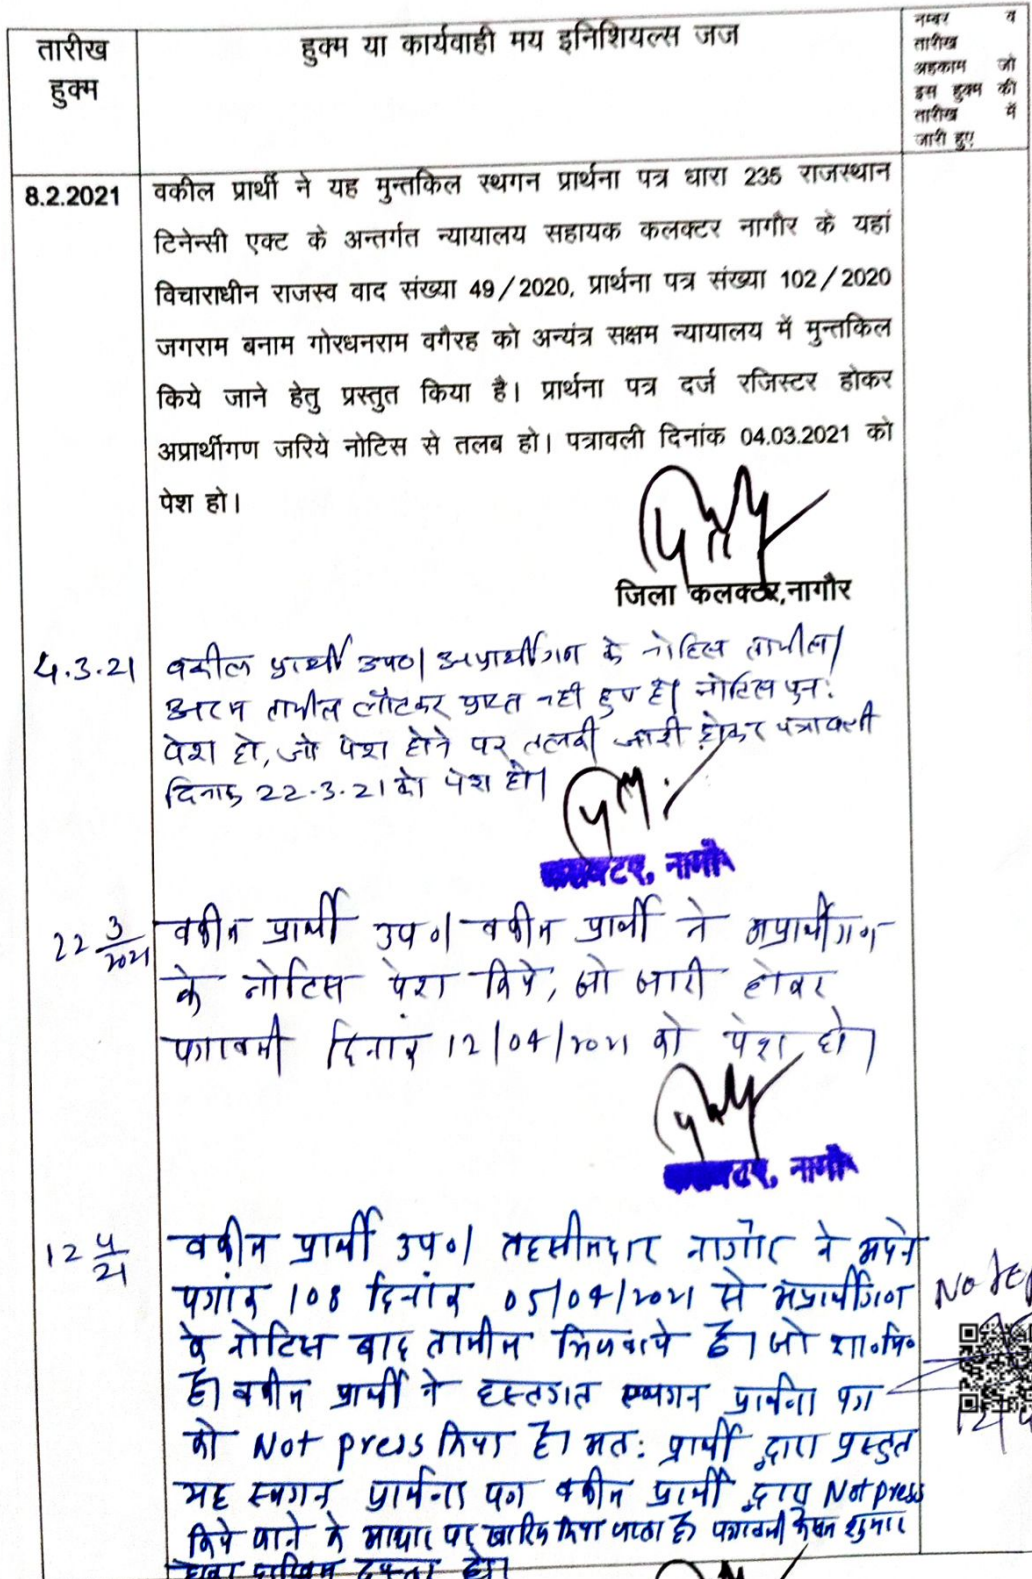 तारीख
हुक्म
हुक्म या कार्यवाही मय इनिशियल्स जज
नम्बर व
तारीख
अहकाम जो
इस हुक्म की
तारीख में
जारी हुए
8.2.2021
वकील प्रार्थी ने यह मुन्तकिल स्थगन प्रार्थना पत्र धारा 235 राजस्थान
टिनेन्सी एक्ट के अन्तर्गत न्यायालय सहायक कलक्टर नागौर के यहां
विचाराधीन राजस्व वाद संख्या 49/2020, प्रार्थना पत्र संख्या 102/2020
जगराम बनाम गोरधनराम वगैरह को अन्यंत्र सक्षम न्यायालय में मुन्तकिल
किये जाने हेतु प्रस्तुत किया है। प्रार्थना पत्र दर्ज रजिस्टर होकर
अप्रार्थीगण जरिये नोटिस से तलब हो। पत्रावली दिनांक 04.03.2021 को
पेश हो।
जिला कलक्टर,नागौर
4.3.21
वकील प्रार्थी उप०। अप्रार्थीगण के नोटिस तामील/
अदम तामील लौटकर प्राप्त नही हुए है। नोटिस पुन:
पेश हो, जो पेश होने पर तलबी जारी होकर पत्रावली
दिनांक 22.3.21 को पेश हो।
कलक्टर, नागौर
22 3/2021
वकील प्रार्थी उप०। वकील प्रार्थी ने अप्रार्थीगण
के नोटिस पेश किये, जो जारी होकर
पत्रावली दिनांक 12/04/2021 को पेश हो।
कलक्टर, नागौर
12 4/21
वकील प्रार्थी उप०। तहसीलदार नागौर ने अपने
पत्रांक 108 दिनांक 05/04/2021 से अप्रार्थीगण
के नोटिस बाद तामील भिजवाये है। जो शा०मि०
है। वकील प्रार्थी ने हस्तगत स्थगन प्रार्थना पत्र
को Not press किया है। अत: प्रार्थी द्वारा प्रस्तुत
यह स्थगन प्रार्थना पत्र वकील प्रार्थी द्वारा Not press
किये जाने के आधार पर खारिज किया जाता है। पत्रावली फैसल शुमार
होकर दाखिल दफ्तर हो।